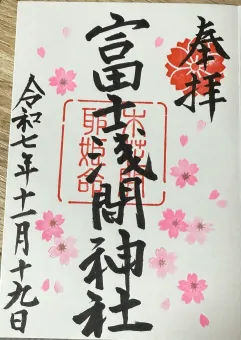 奉拝
富士浅間神社
木花開
耶姫命
令和七年十一月十九日